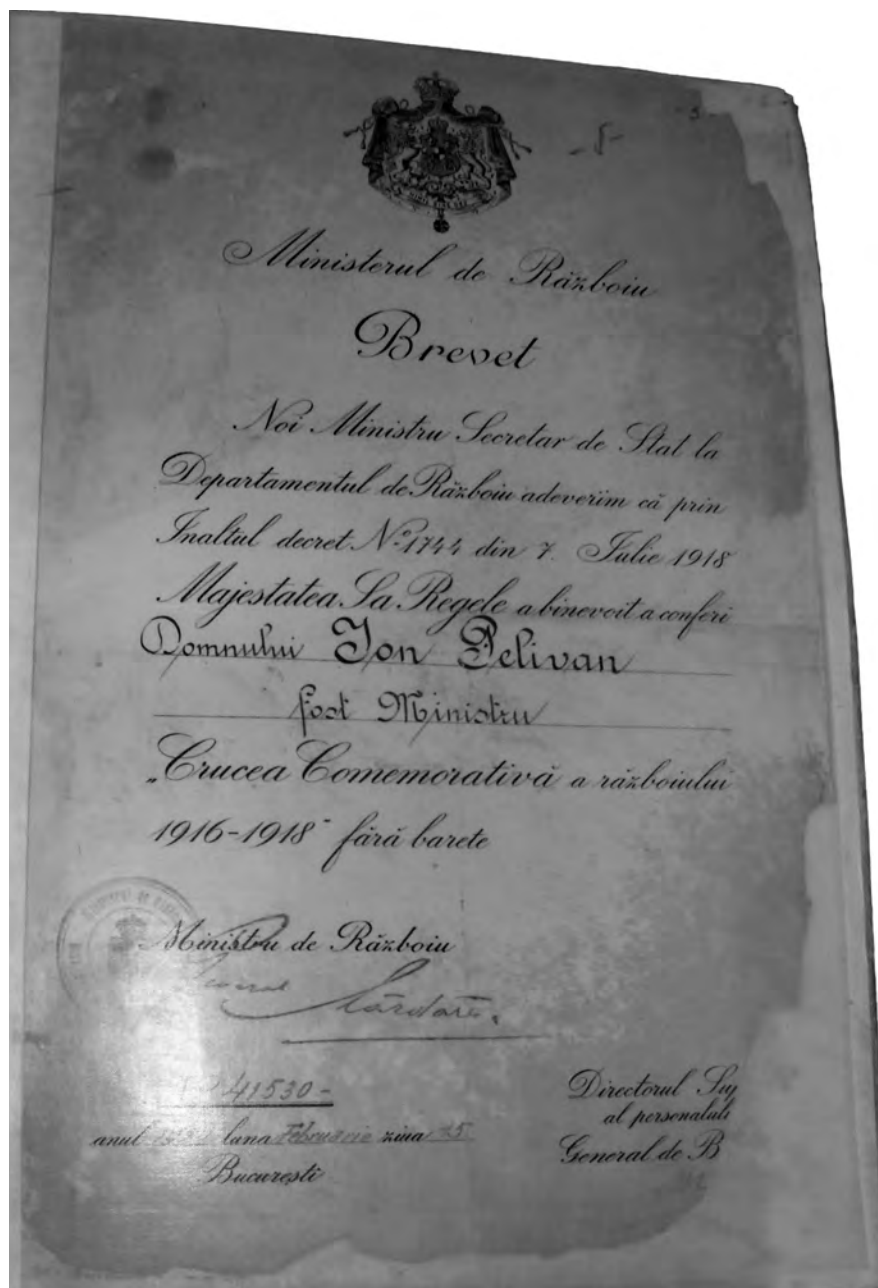 - 5 -
Ministerul de Războiu
Brevet
Noi Ministru Secretar de Stat la
Departamentul de Războiu adeverim că prin
Inaltul decret No 1744 din 7. Iulie 1918
Majestatea Sa Regele a binevoit a conferi
Domnului Ion Pelivan
fost Ministru
„Crucea Comemorativă a războiului
1916-1918" fără barete
Ministru de Războiu
General
41530 -
anul luna Februarie ziua
București
Directorul Su
al personalul
General de B